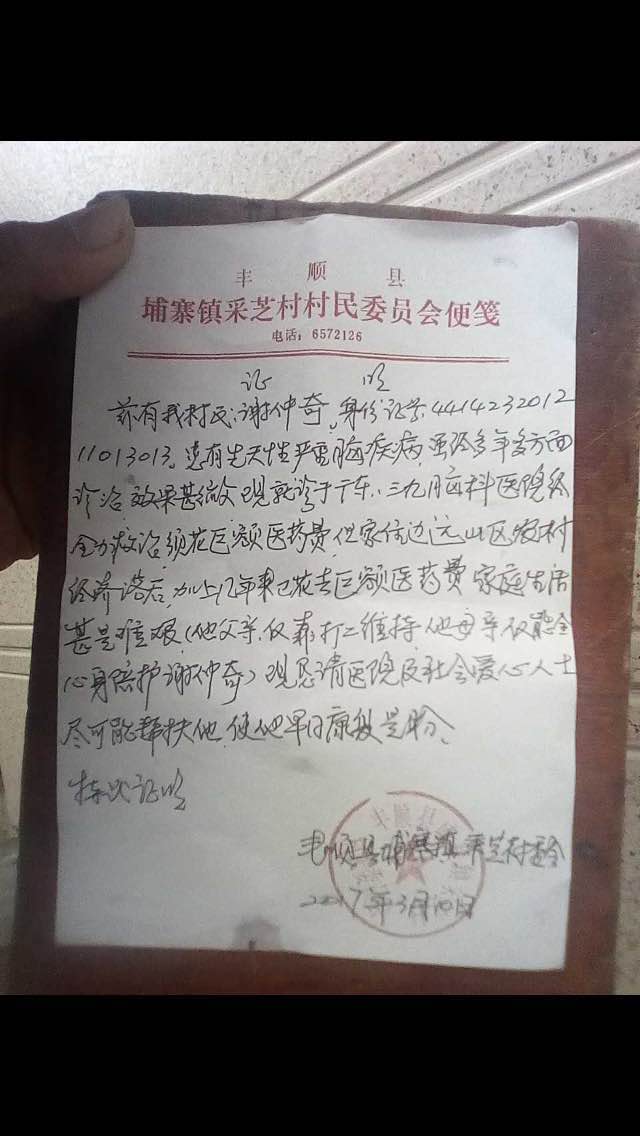 丰顺县
埔寨镇采芝村村民委员会便笺
电话：6572126
证 明
兹有我村民：谢仲奇，身份证号：4414232012
11013013，患有先天性严重脑疾病，虽经多年多方面
诊治效果甚微，现就诊于广东三九脑科医院经
全力救治须花巨额医药费，但家住边远山区农村
经济落后，加上几年来已花去巨额医药费家庭生活
甚是难艰（他父亲仅靠打工维持，他母亲仅能全
心身陪护谢仲奇）现恳请医院及社会爱心人士
尽可能帮扶他，使他早日康复是盼。
特此证明
丰顺县埔寨镇采芝村委会
2017年3月10日
丰顺县